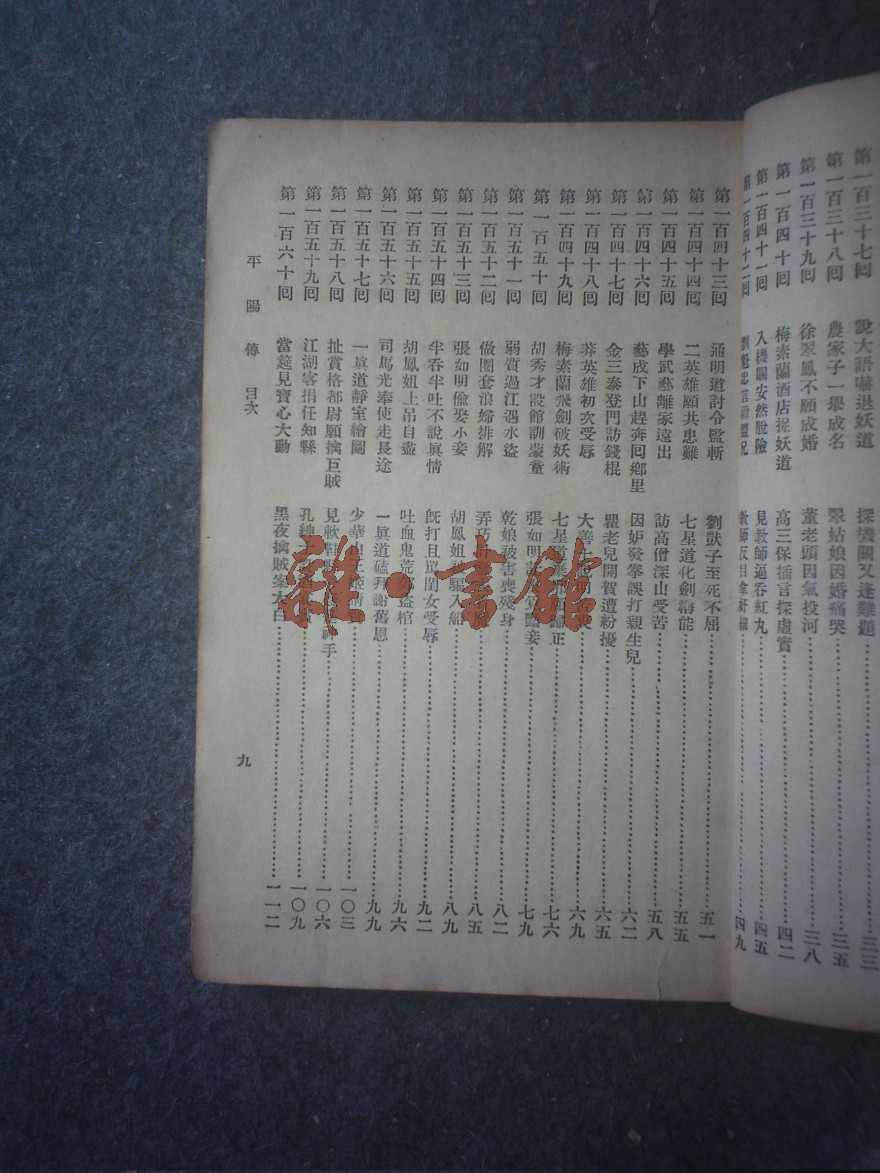 第一百三十七回 說大語嚇退妖道 探機關又逢難題 三三
第一百三十八回 農家子一舉成名 翠姑娘因婚痛哭 三五
第一百三十九回 徐翠鳳不願成婚 董老頭因氣投河 三八
第一百四十回 梅素蘭酒店捉妖道 高三保插言探虛實 四二
第一百四十一回 入機關安然脫險 見教師逼吞紅丸 四五
第一百四十二回 四九
第一百四十三回 通明道討令監斬 劉獃子至死不屈 五一
第一百四十四回 二英雄願共患難 七星道化劍霧能 五五
第一百四十五回 學武藝離家遠出 訪高僧深山受苦 五八
第一百四十六回 藝成下山趕奔回鄉里 因妒發拳誤打親生兒 六二
第一百四十七回 金三泰登門訪錢棍 瞿老兒開賀遭紛擾 六五
第一百四十八回 莽英雄初次受辱 大善士 六九
第一百四十九回 梅素蘭飛劍破妖術 七星道 歸正 七六
第一百五十回 胡秀才設館訓蒙童 張如明 覓豔妾 七九
第一百五十一回 弱質過江遇水盜 乾娘被害喪殘身 八二
第一百五十二回 做圈套浪婦排解 弄巧 八五
第一百五十三回 張如明偷娶小妾 胡鳳姐 騙入船 八九
第一百五十四回 半吞半吐不說眞情 旣打且罵閨女受辱 九二
第一百五十五回 胡鳳姐上吊自盡 吐血鬼荒 盜棺 九六
第一百五十六回 司馬光奉使走長途 一眞道磕拜謝舊恩 九九
第一百五十七回 一眞道靜室繪圖 少華山 一〇三
第一百五十八回 扯賞格都尉願擒巨賊 見軟鞋 手 一〇六
第一百五十九回 江湖客捐任知縣 孔 一〇九
第一百六十回 當筵見寶心大動 黑夜擒賊案大白 一一二
平陽傳 目次 九
雜·書館